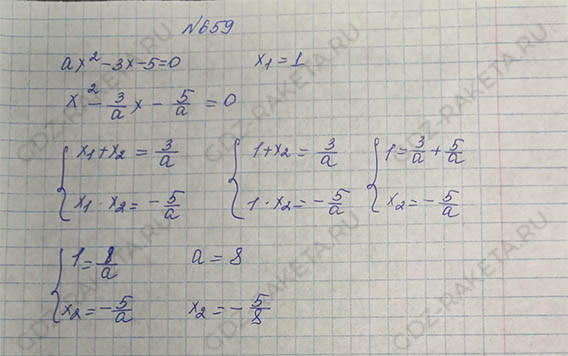 №659
ax² - 3x - 5 = 0    x₁ = 1
x² - 3/a x - 5/a = 0
{ x₁ + x₂ = 3/a    { 1 + x₂ = 3/a    { 1 = 3/a + 5/a
{ x₁ · x₂ = - 5/a    { 1 · x₂ = - 5/a    { x₂ = - 5/a
{ 1 = 8/a    a = 8
{ x₂ = - 5/a    x₂ = - 5/8
GDZ-RAKETA.RU